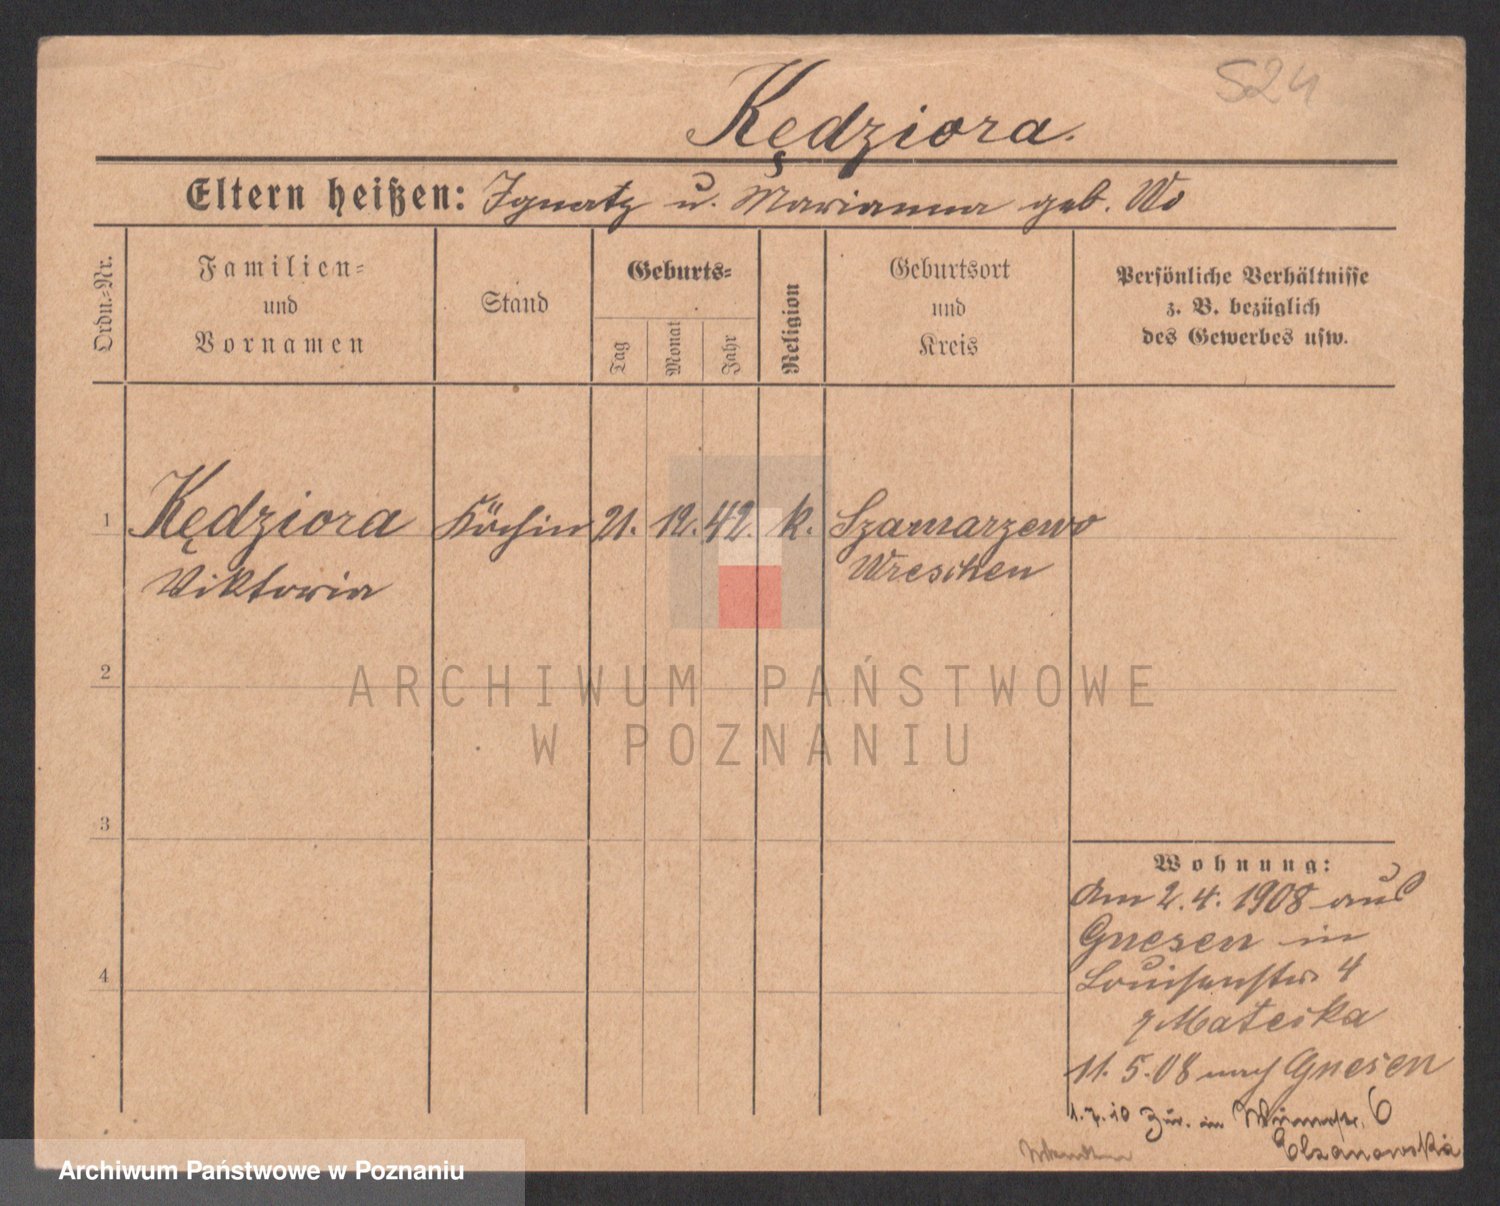 524
Kędziora.
Eltern heißen: Ignatz u. Marianna geb. Wo
Ordn.-Nr.
Familien-
und
Vornamen
Stand
Geburts-
Tag
Monat
Jahr
Religion
Geburtsort
und
Kreis
Persönliche Verhältnisse
z. B. bezüglich
des Gewerbes usw.
1 Kędziora Köchin 21. 12. 42. k. Szamarzewo
Viktoria Wreschen
2
ARCHIWUM PAŃSTWOWE
W POZNANIU
3
Wohnung:
Am 2.4. 1908 aus
Gnesen in
Louisenstr 4
Mateska
4
11. 5. 08 nach Gnesen
1.7.10 Zur. in 6
Elsanowska
Archiwum Państwowe w Poznaniu